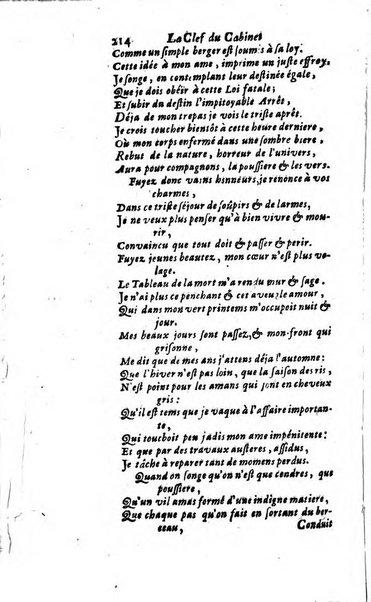 214 La Clef du Cabinet
Comme un simple berger est soumis à sa loy.
Cette idée à mon ame, imprime un juste effroy.
Je songe, en contemplant leur destinée égale,
Que je dois obéir à cette Loi fatale;
Et subir du destin l'impitoyable Arrêt,
Déja de mon trepas je vois le triste aprêt.
Je crois toucher bientôt à cette heure derniere,
Où mon corps enfermé dans une sombre biere,
Rebut de la nature, horreur de l'univers,
Aura pour compagnons, la poussiere & les vers.
Fuyez donc vains honneurs, je renonce à vos
charmes,
Dans ce triste séjour de soûpirs & de larmes,
Je ne veux plus penser qu'à bien vivre & mou-
rir,
Convaincu que tout doit & passer & perir.
Fuyez jeunes beautez, mon cœur n'est plus vo-
lage.
Le Tableau de la mort m'a rendu mur & sage.
Je n'ai plus ce penchant & cet aveugle amour,
Qui dans mon vert printems m'occupoient nuit &
jour.
Mes beaux jours sont passez, & mon front qui
grisonne,
Me dit que de mes ans j'attens déja l'automne:
Que l'hiver n'est pas loin, que la saison des ris,
N'est point pour les amans qui sont en cheveux
gris:
Qu'il est tems que je vaque à l'affaire importan-
te,
Qui touchoit peu jadis mon ame impénitente:
Et que par des travaux austeres, assidus,
Je tâche à reparer tant de momens perdus.
Quand on songe qu'on n'est que cendres, que
poussiere,
Qu'un vil amas formé d'une indigne matiere,
Que chaque pas qu'on fait en sortant du ber-
ceau, Conduit